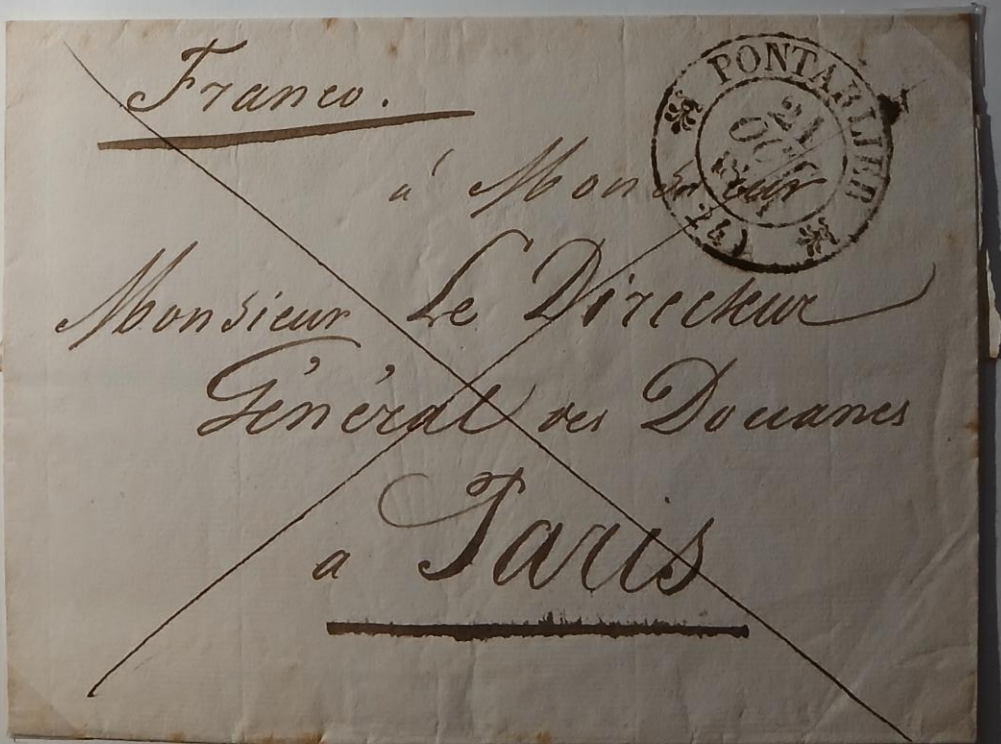 Franco.
PONTARLIER
21
OCT
(24)
à Monsieur
Monsieur Le Directeur
Général des Douanes
a Paris